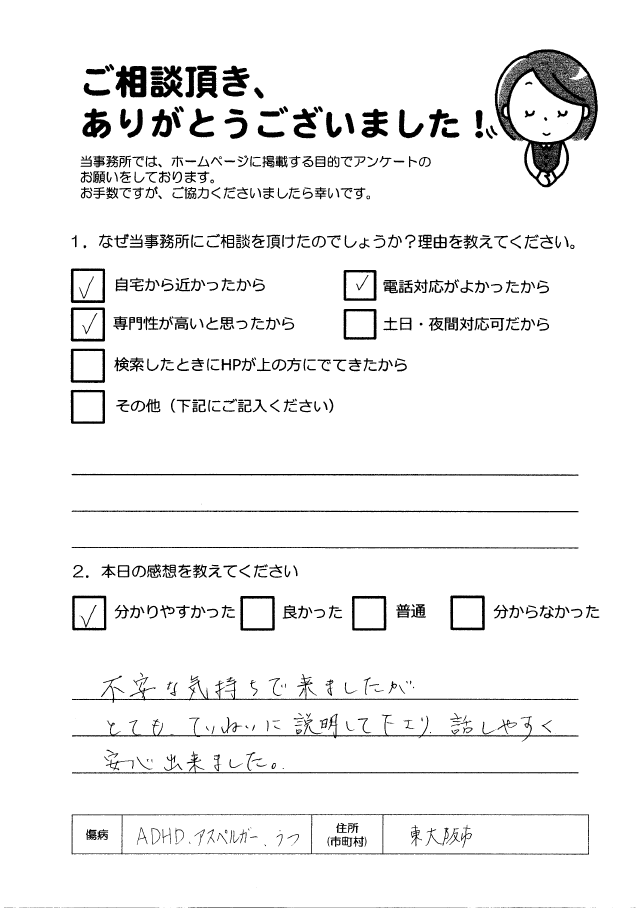 ご相談頂き、
ありがとうございました!
当事務所では、ホームページに掲載する目的でアンケートの
お願いをしております。
お手数ですが、ご協力くださいましたら幸いです。
1．なぜ当事務所にご相談を頂けたのでしょうか？理由を教えてください。
✓ 自宅から近かったから ✓ 電話対応がよかったから
✓ 専門性が高いと思ったから 土日・夜間対応可だから
検索したときにHPが上の方にでてきたから
その他（下記にご記入ください）
2．本日の感想を教えてください
✓ 分かりやすかった 良かった 普通 分からなかった
不安な気持ちで来ましたが
とても、ていねいに説明して下エリ、話しやすく
安心出来ました。
傷病 ADHD、アスペルガー、うつ 住所 東大阪市
(市町村)